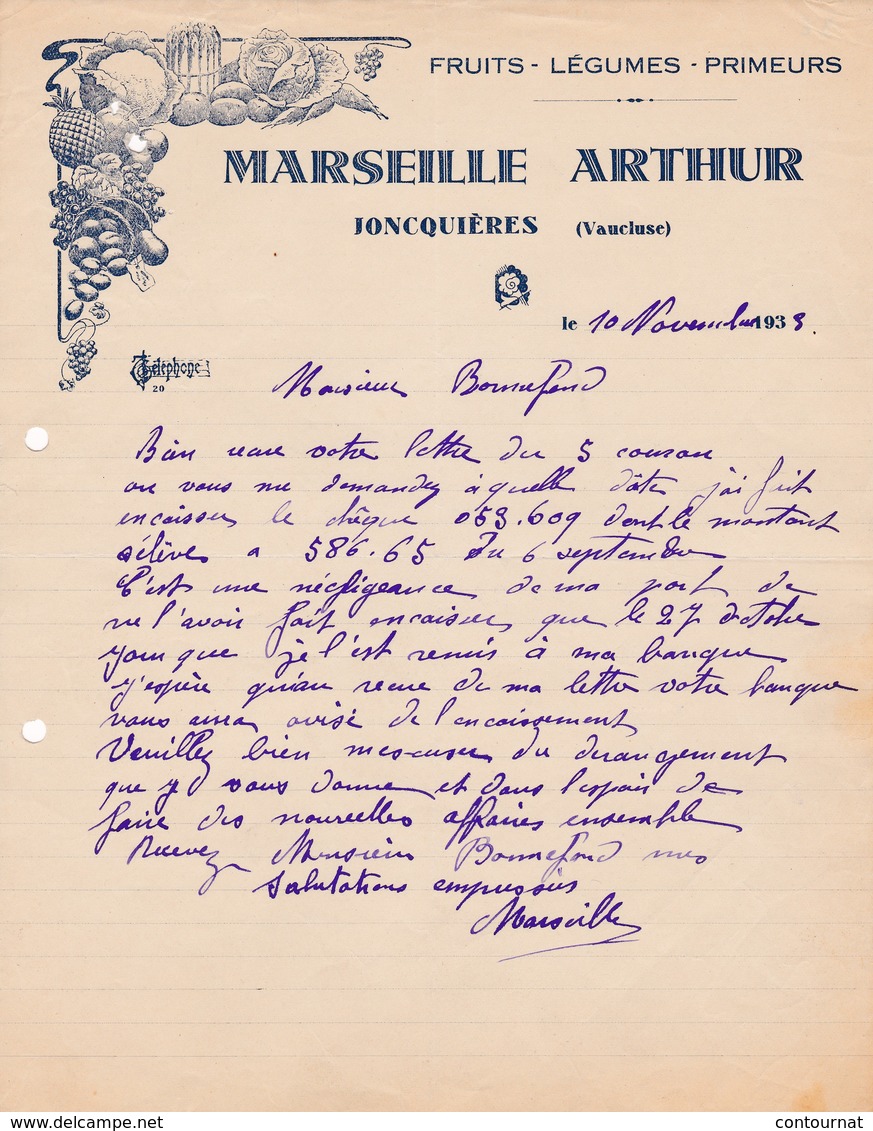 FRUITS - LÉGUMES - PRIMEURS
MARSEILLE ARTHUR
JONCQUIÈRES (Vaucluse)
le 10 Novembre 1933.
Téléphone
20
Monsieur Bonnefond
Bien recue votre lettre du 5 couran
ou vous me demandez à quelle dâte j'ai fait
encaisser le chêque 053.609 dont le montant
s'élêve a 586.65 du 6 septembre
C'est une négligeance de ma part de
ne l'avoir fait encaisser que le 27 octobre
jour que je l'est remis à ma banque
j'espère qu'au recue de ma lettre votre banque
vous aura avisé de l'encaissement
Veuillez bien mescuser du derangement
que je vous donne et dans l'espoir de
faire des nouvelles affaires ensemble
Recevez Monsieur Bonnefond mes
salutations empressés
Marseille
www.delcampe.net
contournat